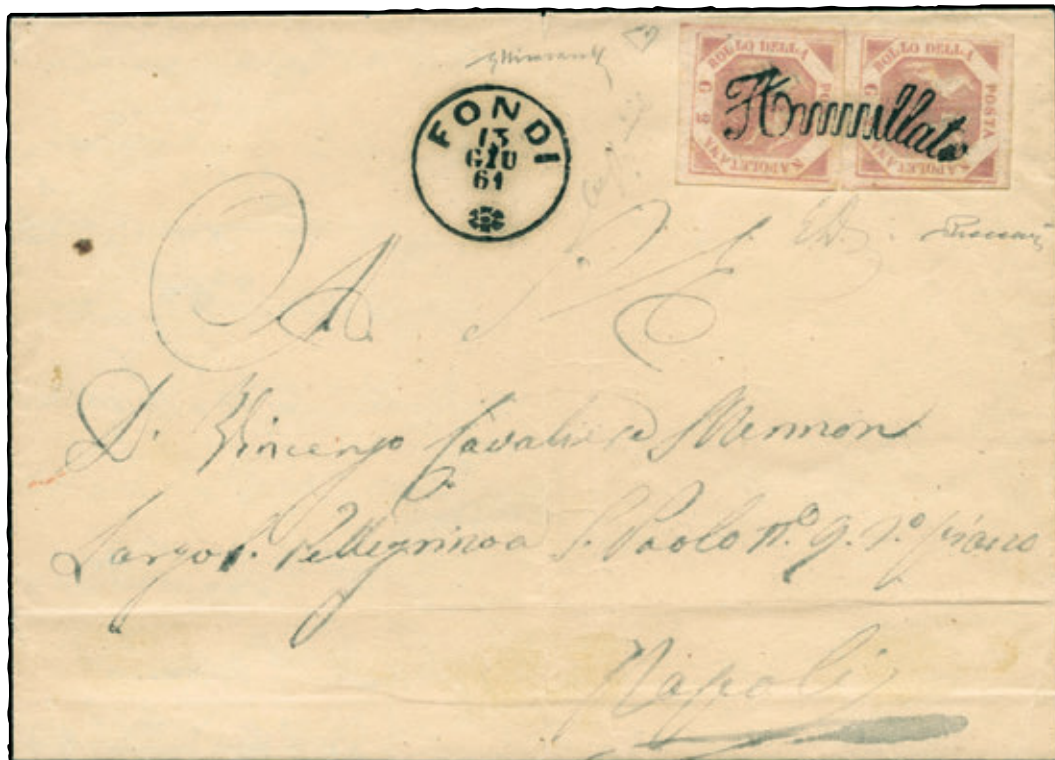 BOLLO DELLA POSTA NAPOLETANA G 2
BOLLO DELLA POSTA NAPOLETANA G
Annullato
FONDI
13
GIU
61
A S. E.
D. Vincenzo Cavaliere Mennon
Largo S. Pellegrino a S. Paolo n.º 9. 1.º piano
Napoli